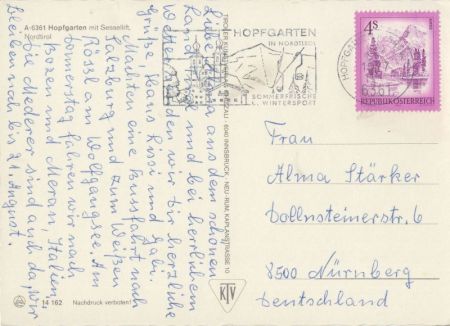 A-6361 Hopfgarten mit Sessellift,
Nordtirol
Liebe Alma aus dem schönen
und bei herrlichem
wir Dir herzliche
Grüße, Klaus, Rissi und Gabi.
Machten eine Busfahrt nach
Salzburg und zum Weißen
Rössl am Wolfgangsee. Am
Donnerstag fahren wir nach
Bozen und Meran, Italien.
Die Mederer sind auch da, wir
bleiben noch bis 21. August.
14 162 Nachdruck verboten!
TIROLER KUNST
6040 INNSBRUCK, NEU-RUM, KAPLANSTRASSE 10
KTV
HOPFGARTEN
IN NORDTIROL
SOMMERFRISCHE
u. WINTERSPORT
HOPFGARTEN
6361
4S
REPUBLIK ÖSTERREICH
Frau
Alma Stärker
Dollnsteinerstr. 6
8500 Nürnberg
Deutschland